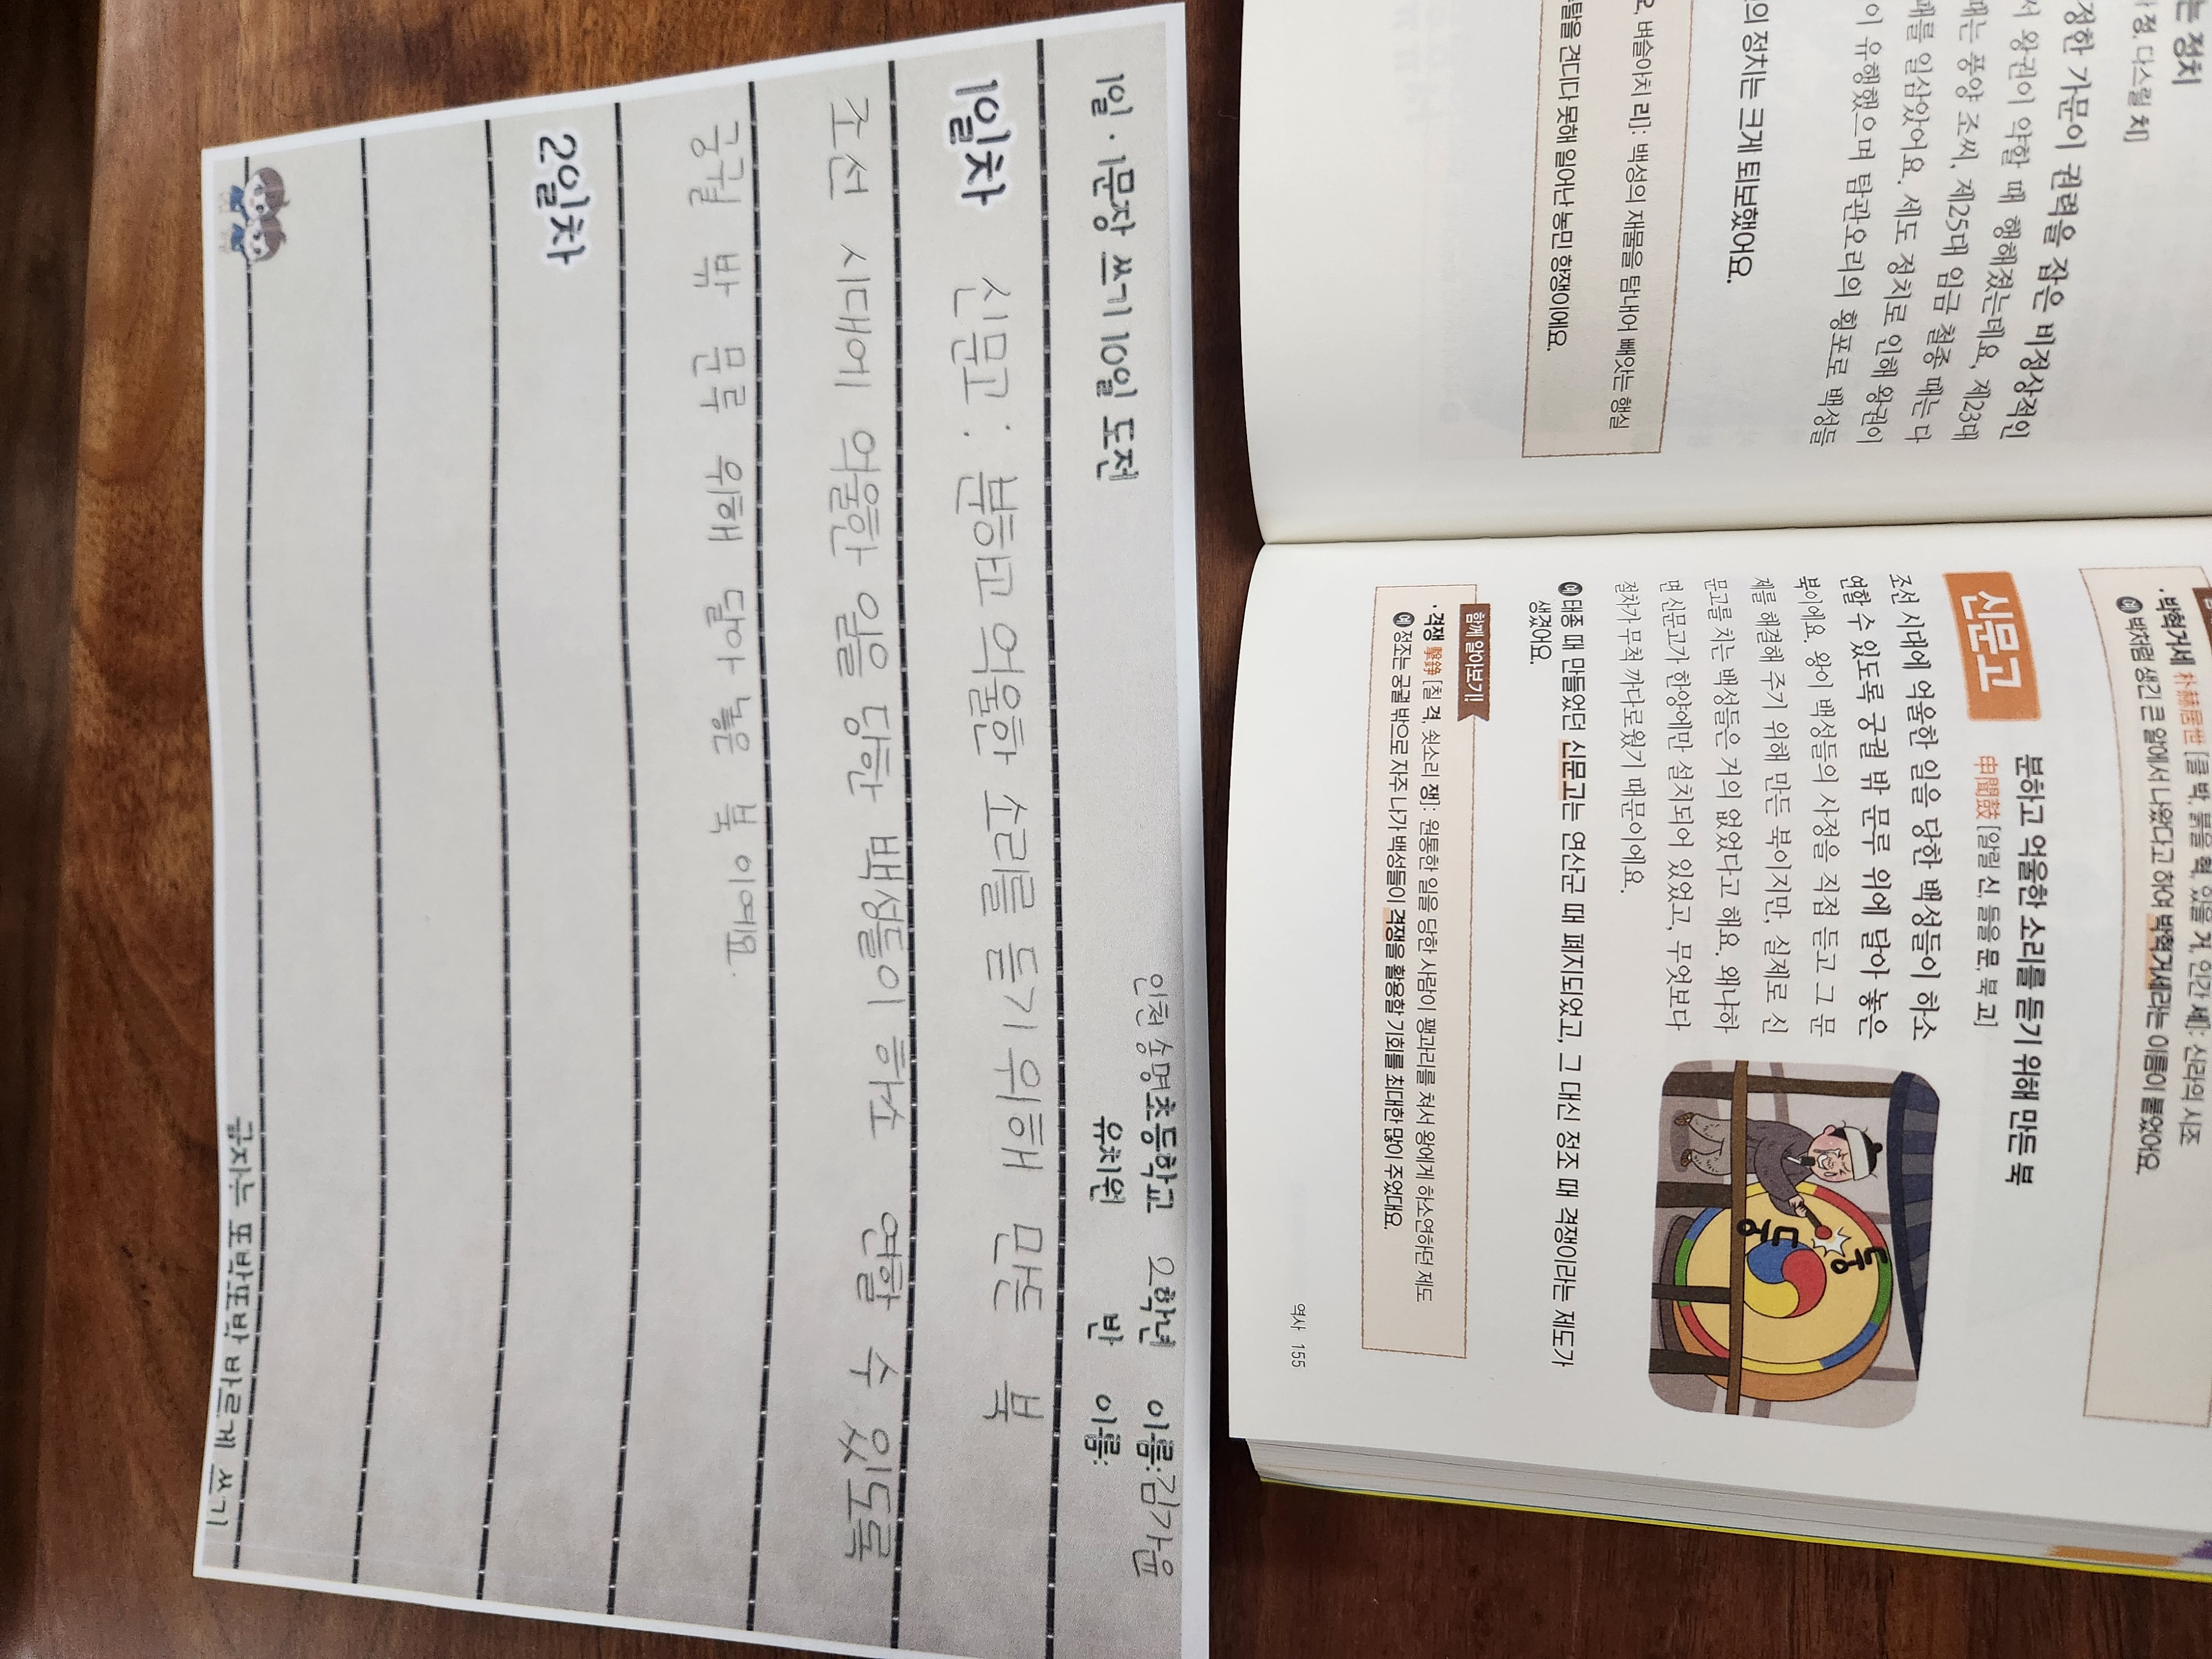 1일·1문장 쓰기 10일 도전
인천송명초등학교 2학년 이름:김가윤
유치원 반 이름:
1일차 신문고: 분하고 억울한 소리를 듣기 위해 만든 북
조선 시대에 억울한 일을 당한 백성들이 하소 연할 수 있도록
궁궐 밖 문루 위해 달아 놓은 북 이예요.
2일차
글자는 또박또박 바르게 쓰기
는 정치
정, 다스릴 치]
정한 가문이 권력을 잡은 비정상적인
서 왕권이 약할 때 행해졌는데요, 제23대
때는 풍양 조씨, 제25대 임금 철종 때는 다
패를 일삼았어요. 세도 정치로 인해 왕권이
이 유행했으며 탐관오리의 횡포로 백성들
의 정치는 크게 퇴보했어요.
벼슬아치 리]: 백성의 재물을 탐내어 빼앗는 행실
탈을 견디다 못해 일어난 농민 항쟁이에요.
· 박혁거세 朴赫居世 [클 박, 붉을 혁, 있을 거, 인간 세]: 신라의 시조
예 박처럼 생긴 큰 알에서 나왔다고 하여 박혁거세라는 이름이 붙었어요.
신문고 분하고 억울한 소리를 듣기 위해 만든 북
申聞鼓 [알릴 신, 들을 문, 북 고]
조선 시대에 억울한 일을 당한 백성들이 하소
연할 수 있도록 궁궐 밖 문루 위에 달아 놓은
북이에요. 왕이 백성들의 사정을 직접 듣고 그 문
제를 해결해 주기 위해 만든 북이지만, 실제로 신
문고를 치는 백성들은 거의 없었다고 해요. 왜냐하
면 신문고가 한양에만 설치되어 있었고, 무엇보다
절차가 무척 까다로웠기 때문이에요.
둥
둥
예 태종 때 만들었던 신문고는 연산군 때 폐지되었고, 그 대신 정조 때 격쟁이라는 제도가
생겼어요.
함께 알아보기!
· 격쟁 擊錚 [칠 격, 쇳소리 쟁]: 원통한 일을 당한 사람이 꽹과리를 쳐서 왕에게 하소연하던 제도
예 정조는 궁궐 밖으로 자주 나가 백성들이 격쟁을 활용할 기회를 최대한 많이 주었대요.
역사 155